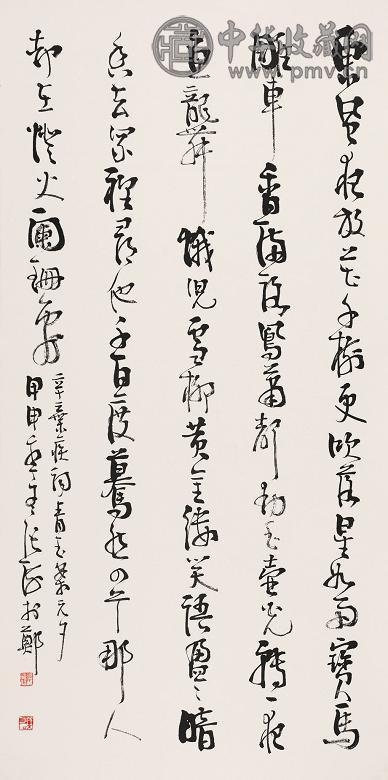 中华收藏网
www.pmv.cn
東風夜放花千樹更吹落星如雨寶馬
雕車香滿路鳳簫聲動玉壺光轉一夜
魚龍舞蛾兒雪柳黃金縷笑語盈〻暗
香去眾裡尋他千百度驀然回首那人
却在燈火闌珊處
辛棄疾詞青玉案元夕
甲申張海於鄭